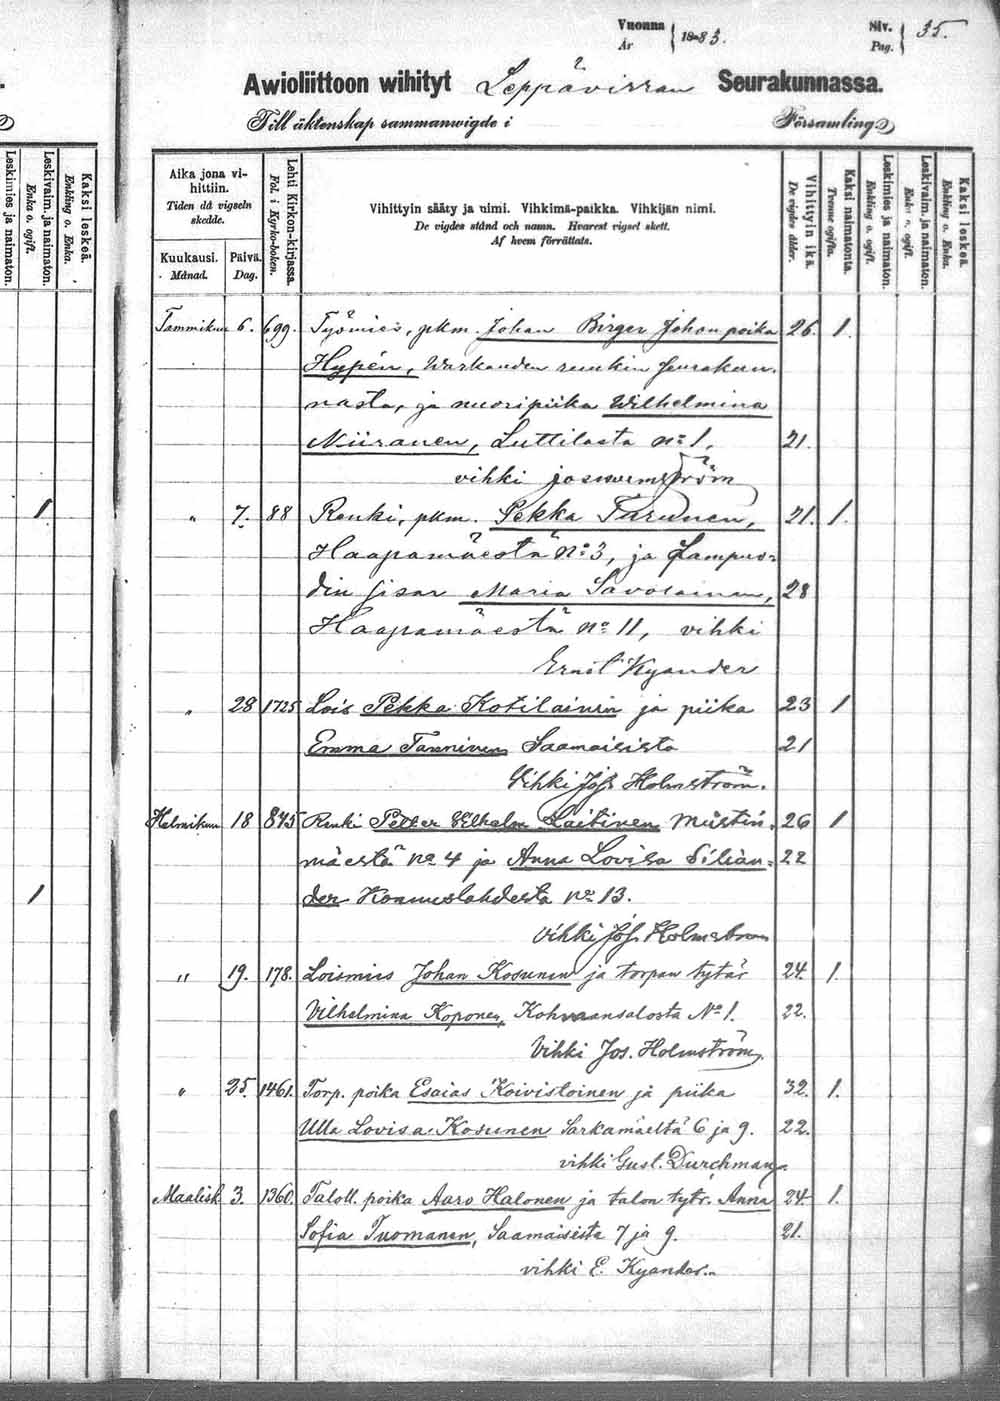 Vuonna 1883. Siv. 35.
År Pag.
Awioliittoon wihityt Leppävirran Seurakunnassa.
Till äktenskap sammanwigde i Församling
Leskimies ja naimaton.
Leskivaim. ja naimaton. Enka o. ogift.
Kaksi leskeä. Enkling o. Enka.
Aika jona vihittiin.
Tiden då vigseln skedde.
Kuukausi. Månad.
Päivä. Dag.
Lehti Kirkon-kirjassa. Fol. i Kyrko-boken.
Vihittyin sääty ja nimi. Vihkimä-paikka. Vihkijän nimi.
De vigdes stånd och namn. Hvarest vigsel skett.
Af hvem förrättats.
Vihittyin ikä. De vigdes ålder.
Kaksi naimatonta. Tvenne ogifta.
Leskimies ja naimaton. Enkling o. ogift.
Leskivaim. ja naimaton. Enka o. ogift.
Kaksi leskeä. Enkling o. Enka.
Tammikuu 6. 699. Työmies, pkm. Johan Birger Johan poika 26. 1.
Hypén, Warkauden ruukin seurakun-
nasta, ja nuoripiika Wilhelmina
Niiranen, Luttilasta no 1, 21.
vihki
1 " 7. 88 Renki, pkm. Pekka Turunen, 21. 1.
Haapamäestä No 3, ja Lampuo-
din sisar Maria Savolainen, 28
Haapamäestä no 11, vihki
Ernst Kyander
" 28 1725 Lois Pekka Kotilainen ja piika 23 1
Emma Tanninen Saamaisista 21
Vihki Jos. Holmström.
Helmikuu 18 845 Renki Petter Vilhelm Laitinen Mustin- 26 1
mäestä no 4 ja Anna Lovisa Silian- 22
1 der Konnuslahdesta no 13.
Vihki Jos. Holmström
" 19. 178. Loismies Johan Kosunen ja torpan tytär 24. 1.
Vilhelmina Koponen, Kohmansalosta No 1. 22.
Vihki Jos. Holmström.
" 25. 1461. Torp. poika Esaias Koivistoinen ja piika 32. 1.
Ulla Lovisa Kosunen Sarkamäeltä 6 ja 9. 22.
vihki Gust. Durchman.
Maalisk. 3. 1360. Taloll. poika Aaro Halonen ja talon tytr. Anna 24. 1.
Sofia Tuomanen, Saamaisista 7 ja 9. 21.
vihki E. Kyander.